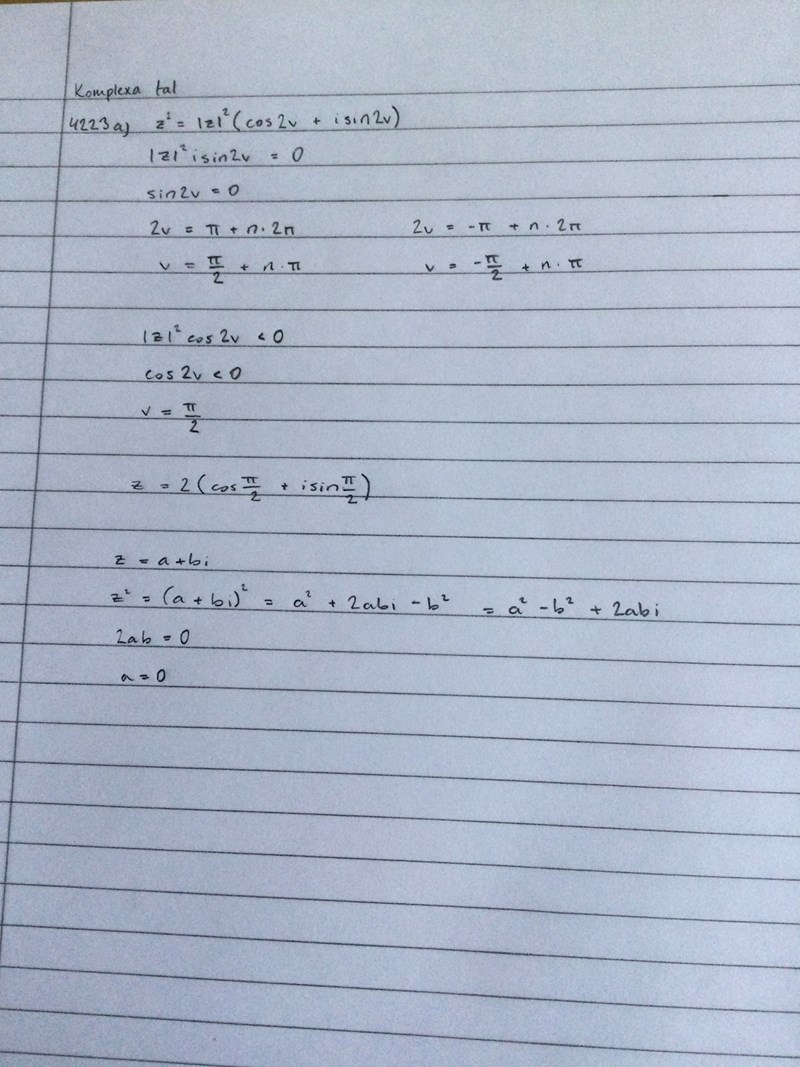 Komplexa tal
4223 a) z² = |z|² (cos 2v + i sin 2v)
|z|² i sin 2v = 0
sin 2v = 0
2v = π + n · 2π 2v = -π + n · 2π
v = π/2 + n · π v = -π/2 + n · π
|z|² cos 2v < 0
cos 2v < 0
v = π/2
z = 2 (cos π/2 + i sin π/2)
z = a + bi
z² = (a + bi)² = a² + 2abi - b² = a² - b² + 2abi
2ab = 0
a = 0